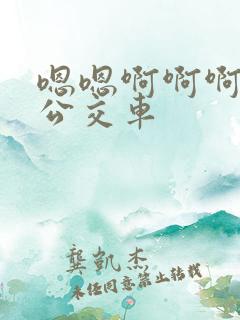 嗯嗯啊啊啊
公交车
龔凱杰
未经同意禁止转载